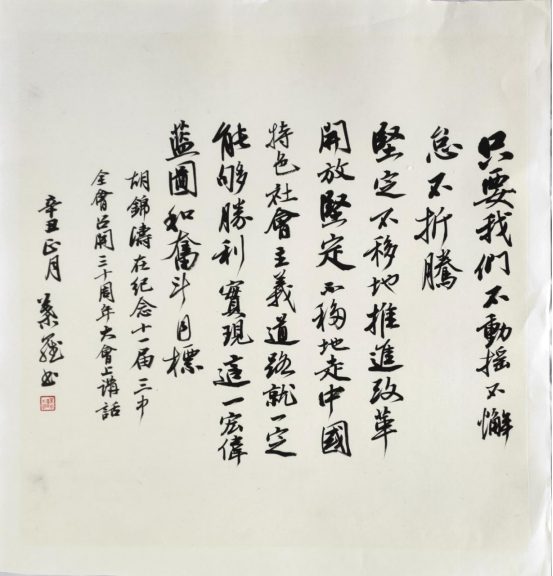 只要我们不動摇不懈
怠不折騰
堅定不移地推進改革
開放堅定不移地走中國
特色社會主義道路就一定
能够勝利實現這一宏偉
蓝圖和奮斗目標
胡錦濤在紀念十一届三中
全會召開三十周年大會上講話
辛丑正月